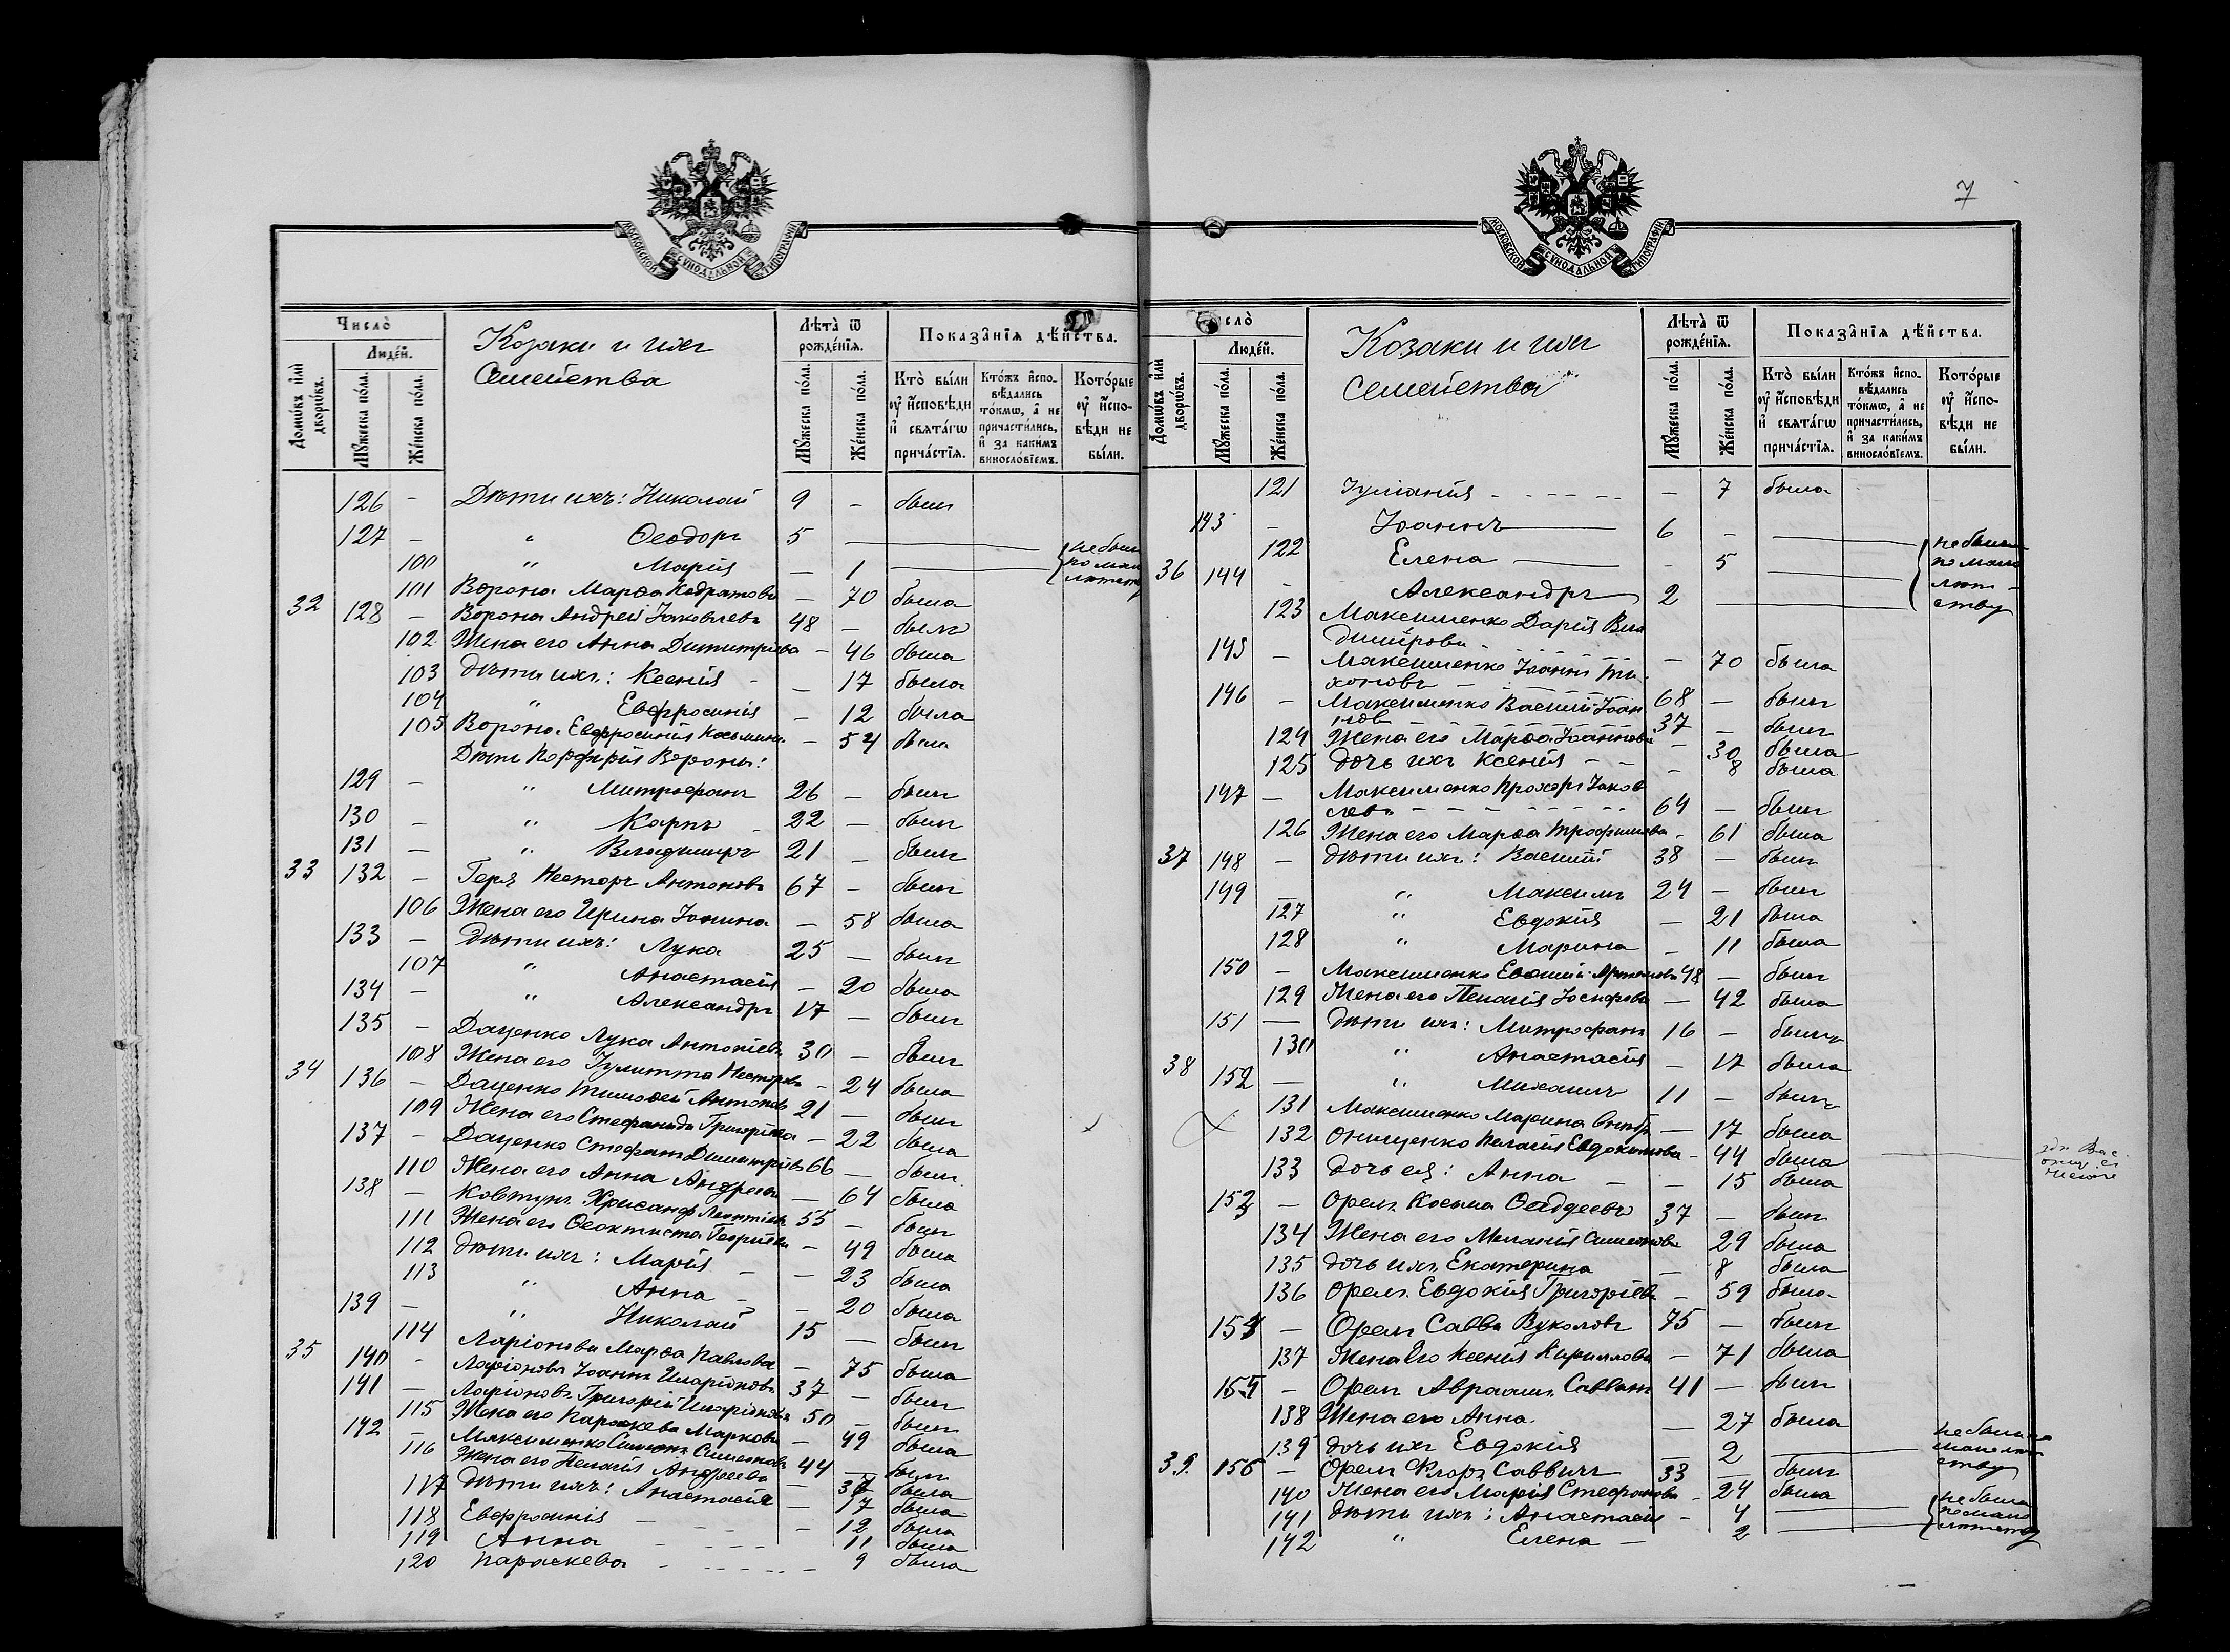 МОСКОВСКОЙ СѴНОДАЛЬНОЙ ТИПОГРАФІИ
Число̀
Людей.
Домѡвъ и҆лѝ дворѡвъ.
Мꙋжеска по́ла.
Же́нска по́ла.
Козаки и ихъ
Семейства
Лѣта̀ ѿ рожде́нїя.
Мꙋжеска по́ла.
Же́нска по́ла.
Показа̑нїѧ дѣ́йства.
Кто̀ бы́ли ᲂу҆ и҆сповѣди и҆ свѧта́гѡ прича́стїѧ.
Кто́жъ и҆сповѣдались то́кмѡ, а҆ не причасти́лись, и҆ за каки́мъ винослові́емъ.
Кото́рые ᲂу҆ и҆споⷡѣди не бы́ли.
126 - Дѣти ихъ: Николай 9 - былъ
127 - " Ѳеодоръ 5
100 " Марія - 1 не были по мало лѣтству
101 Ворона Марѳа Кодратова - 70 была
32 128 - Ворона Андрей Іаковлевъ 48 - былъ
102 Жена его Анна Димитріева - 46 была
103 Дѣти ихъ: Ксенія - - 17 была
104 " Евфросинія - 12 была
105 Ворона Евфросинія Косьмина - 54 была
Дѣти Порфирія Вороны:
129 - " Митрофанъ 26 - былъ
130 - " Карпъ 22 - былъ
131 - " Владиміръ 21 - былъ
33 132 - Геря Несторъ Антоновъ 67 - былъ
106 Жена его Ирина Іонина - 58 была
133 - Дѣти ихъ: Лука 25 - былъ
107 " Анастасія - 20 была
134 - " Александръ 17 - былъ
135 - Даценко Лука Антоніевъ 30 - былъ
108 Жена его Іулитта Несторова - 24 была
34 136 - Даценко Тимоѳей Антоновъ 21 - былъ
109 Жена его Стефанида Григоріева - 22 была
137 - Даценко Стефанъ Димитріевъ 66 - былъ
110 Жена его Анна Андреева - 64 была
138 - Ковтунъ Хрисанфъ Леонтіевъ 55 - былъ
111 Жена его Ѳеоктиста Георгіева - 49 была
112 Дѣти ихъ: Марія - - 23 была
113 " Анна - - 20 была
139 - " Николай 15 - былъ
114 Ларіонова Марѳа Павлова - 75 была
35 140 - Ларіоновъ Іоаннъ Иларіоновъ 37 - былъ
141 - Ларіоновъ Григорій Иларіоновъ 50 - былъ
115 Жена его Параскева Маркова - 49 была
142 - Максименко Симеонъ Симеоновъ 44 - былъ
116 Жена его Пелагія Андреева - 37 была
117 Дѣти ихъ: Анастасія - 17 была
118 Евфросинія - 12 была
119 Анна - 11 была
120 Параскева - 9 была
7
МОСКОВСКОЙ СѴНОДАЛЬНОЙ ТИПОГРАФІИ
Число̀
Людей.
Домѡвъ и҆лѝ дворѡвъ.
Мꙋжеска по́ла.
Же́нска по́ла.
Козаки и ихъ
семейства
Лѣта̀ ѿ рожде́нїя.
Мꙋжеска по́ла.
Же́нска по́ла.
Показа̑нїѧ дѣ́йства.
Кто̀ бы́ли ᲂу҆ и҆сповѣди и҆ свѧта́гѡ прича́стїѧ.
Кто́жъ и҆сповѣдались то́кмѡ, а҆ не причасти́лись, и҆ за каки́мъ винослові́емъ.
Кото́рые ᲂу҆ и҆сповѣди не бы́ли.
121 Іуліанія - 7 была
143 - Іоаннъ 6 -
122 Елена - 5 не были по мало лѣт ству
36 144 - Александръ 2
123 Максименко Дарія Вла
диміров - 70 была
145 - Максименко Іоаннъ Ти
хоновъ 68 - былъ
146 - Максименко Василій Іоан
нов 37 - былъ
124 Жена его Марѳа Іоаннова - 30 была
125 дочь ихъ Ксенія - - 8 была
147 - Максименко Прохоръ Іаков
левъ 64 - былъ
126 Жена его Марѳа Трофимова - 61 была
37 148 - дѣти ихъ: Василій 38 - былъ
149 - " Максимъ 24 - былъ
127 " Евдокія - 21 была
128 " Марина - 11 была
150 - Максименко Евѳимій Артемовъ 48 - былъ
129 Жена его Пелагія Іосифова - 42 была
151 - Дѣти ихъ: Митрофанъ 16 - былъ
130 " Анастасія - 17 была
38 152 - " Михаилъ 11 - былъ
131 Максименко Марина - 17 была
132 Онищенко Пелагія Евдокимова - 44 была
133 Дочь ея: Анна - - 15 была
153 - Орелъ Косьма Ѳаддеевъ 37 - былъ
134 Жена его Меланія Симеонова 29 была
135 дочь ихъ Екатерина - 8 была
136 Орелъ Евдокія Григоріева - 59 была
154 - Орелъ Савва Вуколовъ 75 - былъ
137 Жена его Ксенія Кириллова - 71 была
155 - Орелъ Авраамъ Саввинъ 41 - былъ
138 Жена его Анна - 27 была
139 дочь ихъ Евдокія - 2 не была мало лѣтству
39. 156 - Орелъ Флоръ Саввичъ 33 - былъ
140 Жена его Марія Стефанова - 24 была
141 дѣти ихъ: Анастасія - 4 не были по мало лѣтству
142 " Елена - 2